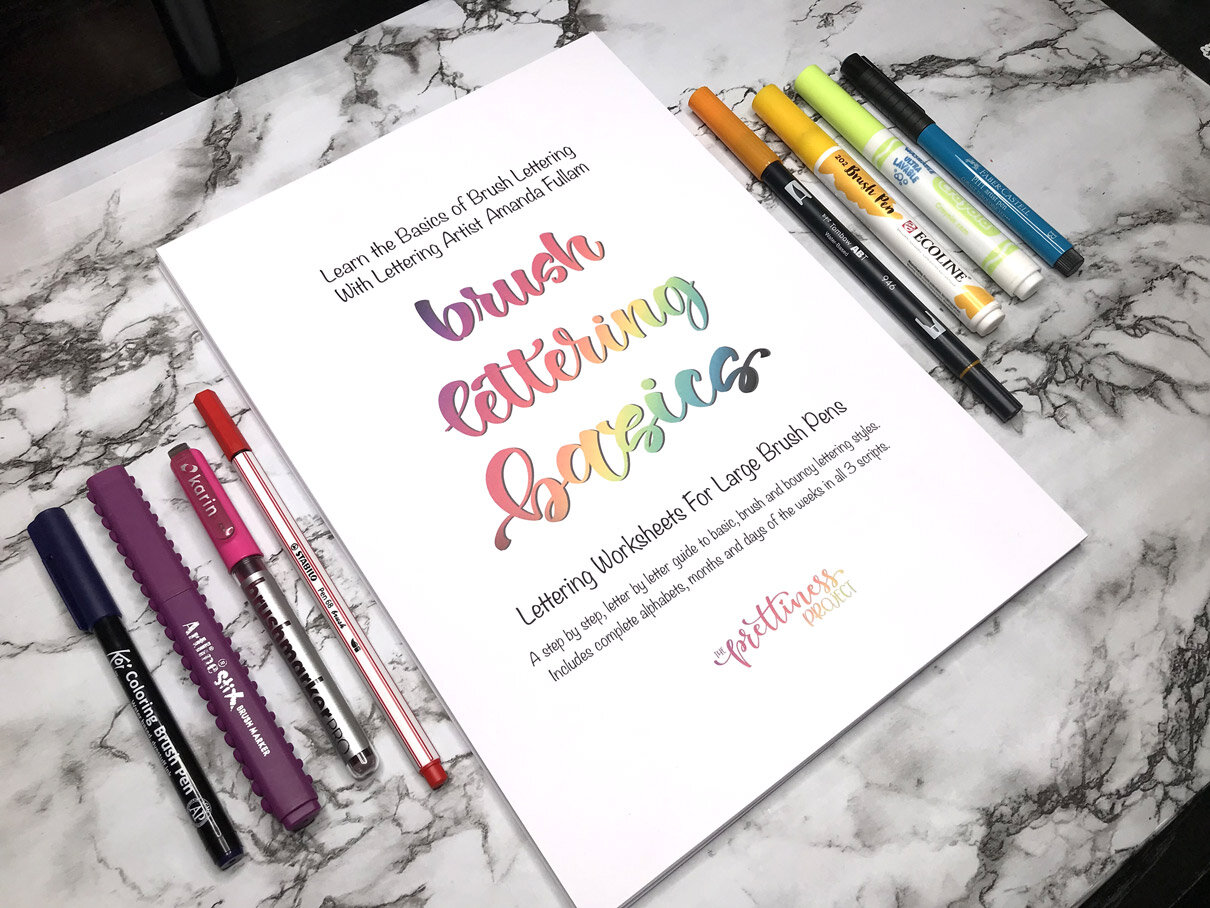 Learn the Basics of Brush Lettering
With Lettering Artist Amanda Fullam
brush
lettering
basics
Lettering Worksheets For Large Brush Pens
A step by step, letter by letter guide to basic, brush and bouncy lettering styles.
Includes complete alphabets, months and days of the weeks in all 3 scripts.
THE prettiness
PROJECT
Koi
Coloring Brush Pen
AP
Artline Stix
BRUSH MARKER
karin
brushmarker PRO
STABILO Pen 68 brush
Tombow ABT
946
202 Brush Pen
ECOLINE
ULTRA
LAVABLE
Crayola
FABER-CASTELL
PITT artist pen
B